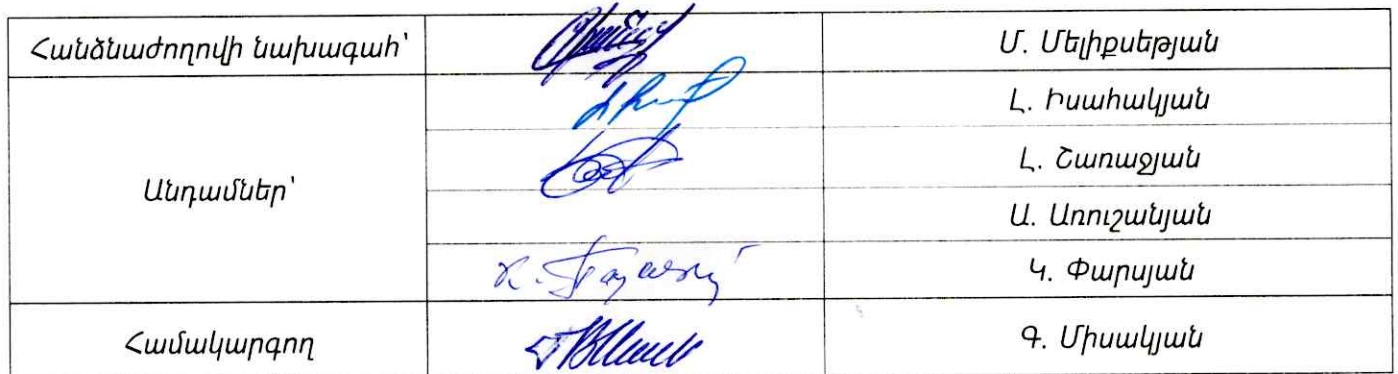 Հանձնաժողովի նախագահ՝ Մ. Մելիքսեթյան
Լ. Իսահակյան
Լ. Շառաջյան
Անդամներ՝
Ա. Առուշանյան
Կ. Փարսյան
Համակարգող Գ. Միսակյան